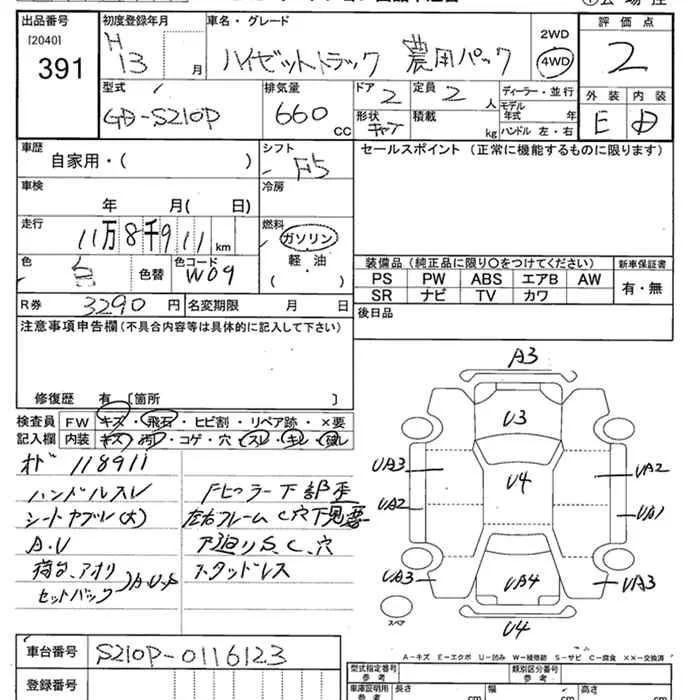 出品番号 初度登録年月 車名・グレード 評価点
[2040] 391 H13 月 ハイゼットトラック 農用パック 2WD 4WD 2
型式 排気量 ドア 定員 ディーラー・並行 外装 内装
GD-S210P 660 CC 2 2 人 モデル年式 年 E D
形状 積載 kg ハンドル 左・右
車歴 シフト セールスポイント(正常に機能するものに限ります)
自家用・( ) F5
車検 冷房
年 月( 日)
走行 燃料
11万8千911 km ガソリン
色 色コード 軽・油 装備品(純正品に限り○をつけてください) 新車保証書
白 色替 W09 ( ) PS PW ABS エアB AW 有・無
SR ナビ TV カワ
R券 3290 円 名変期限 月 日 後日品
注意事項申告欄(不具合内容等は具体的に記入して下さい)
修復歴 有 [箇所 ]
検査員 FW キズ・飛石・ヒビ割・リペア跡・×要
記入欄 内装 キズ・汚レ・コゲ・穴・スレ・キレ・破レ
オド 118911
ハンドルスレ
シートヤブレ(大)
A.U
荷台、アオリ
セットバック A.U.P
Fピラー下部歪
左右フレームC穴下見悪
下廻りS、C、穴
スタッドレス
A3
U3
UA3 U4 UA2
UA2 UA1
UA3 UA4 UA3
スペア U4
A-キズ E-エクボ U-凹み W-補修跡 S-サビ C-腐食 ××-交換済
車台番号 S210P-0116123
登録番号
型式指定番号 参考 類別区分番号 参考
車庫証明用 参考 長さ cm 幅 cm 高さ cm